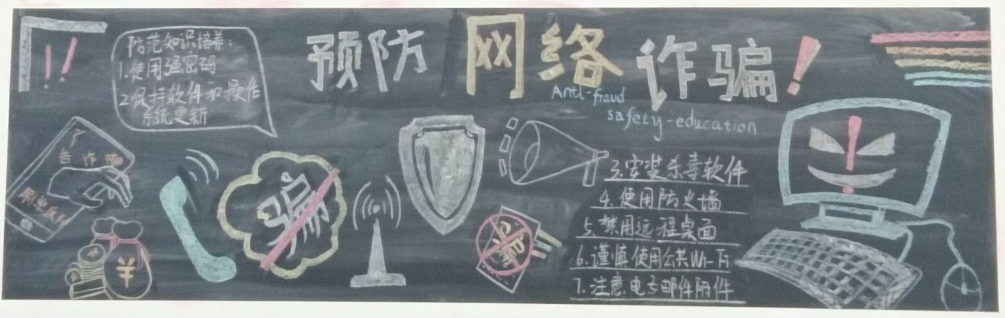 预防网络诈骗!
Anti-fraud
safety-education
防范知识培养:
1.使用强密码
2.保持软件和操作
系统更新
3.安装杀毒软件
4.使用防火墙
5.禁用远程桌面
6.谨慎使用公共Wi-Fi
7.注意电子邮件附件
骗
¥